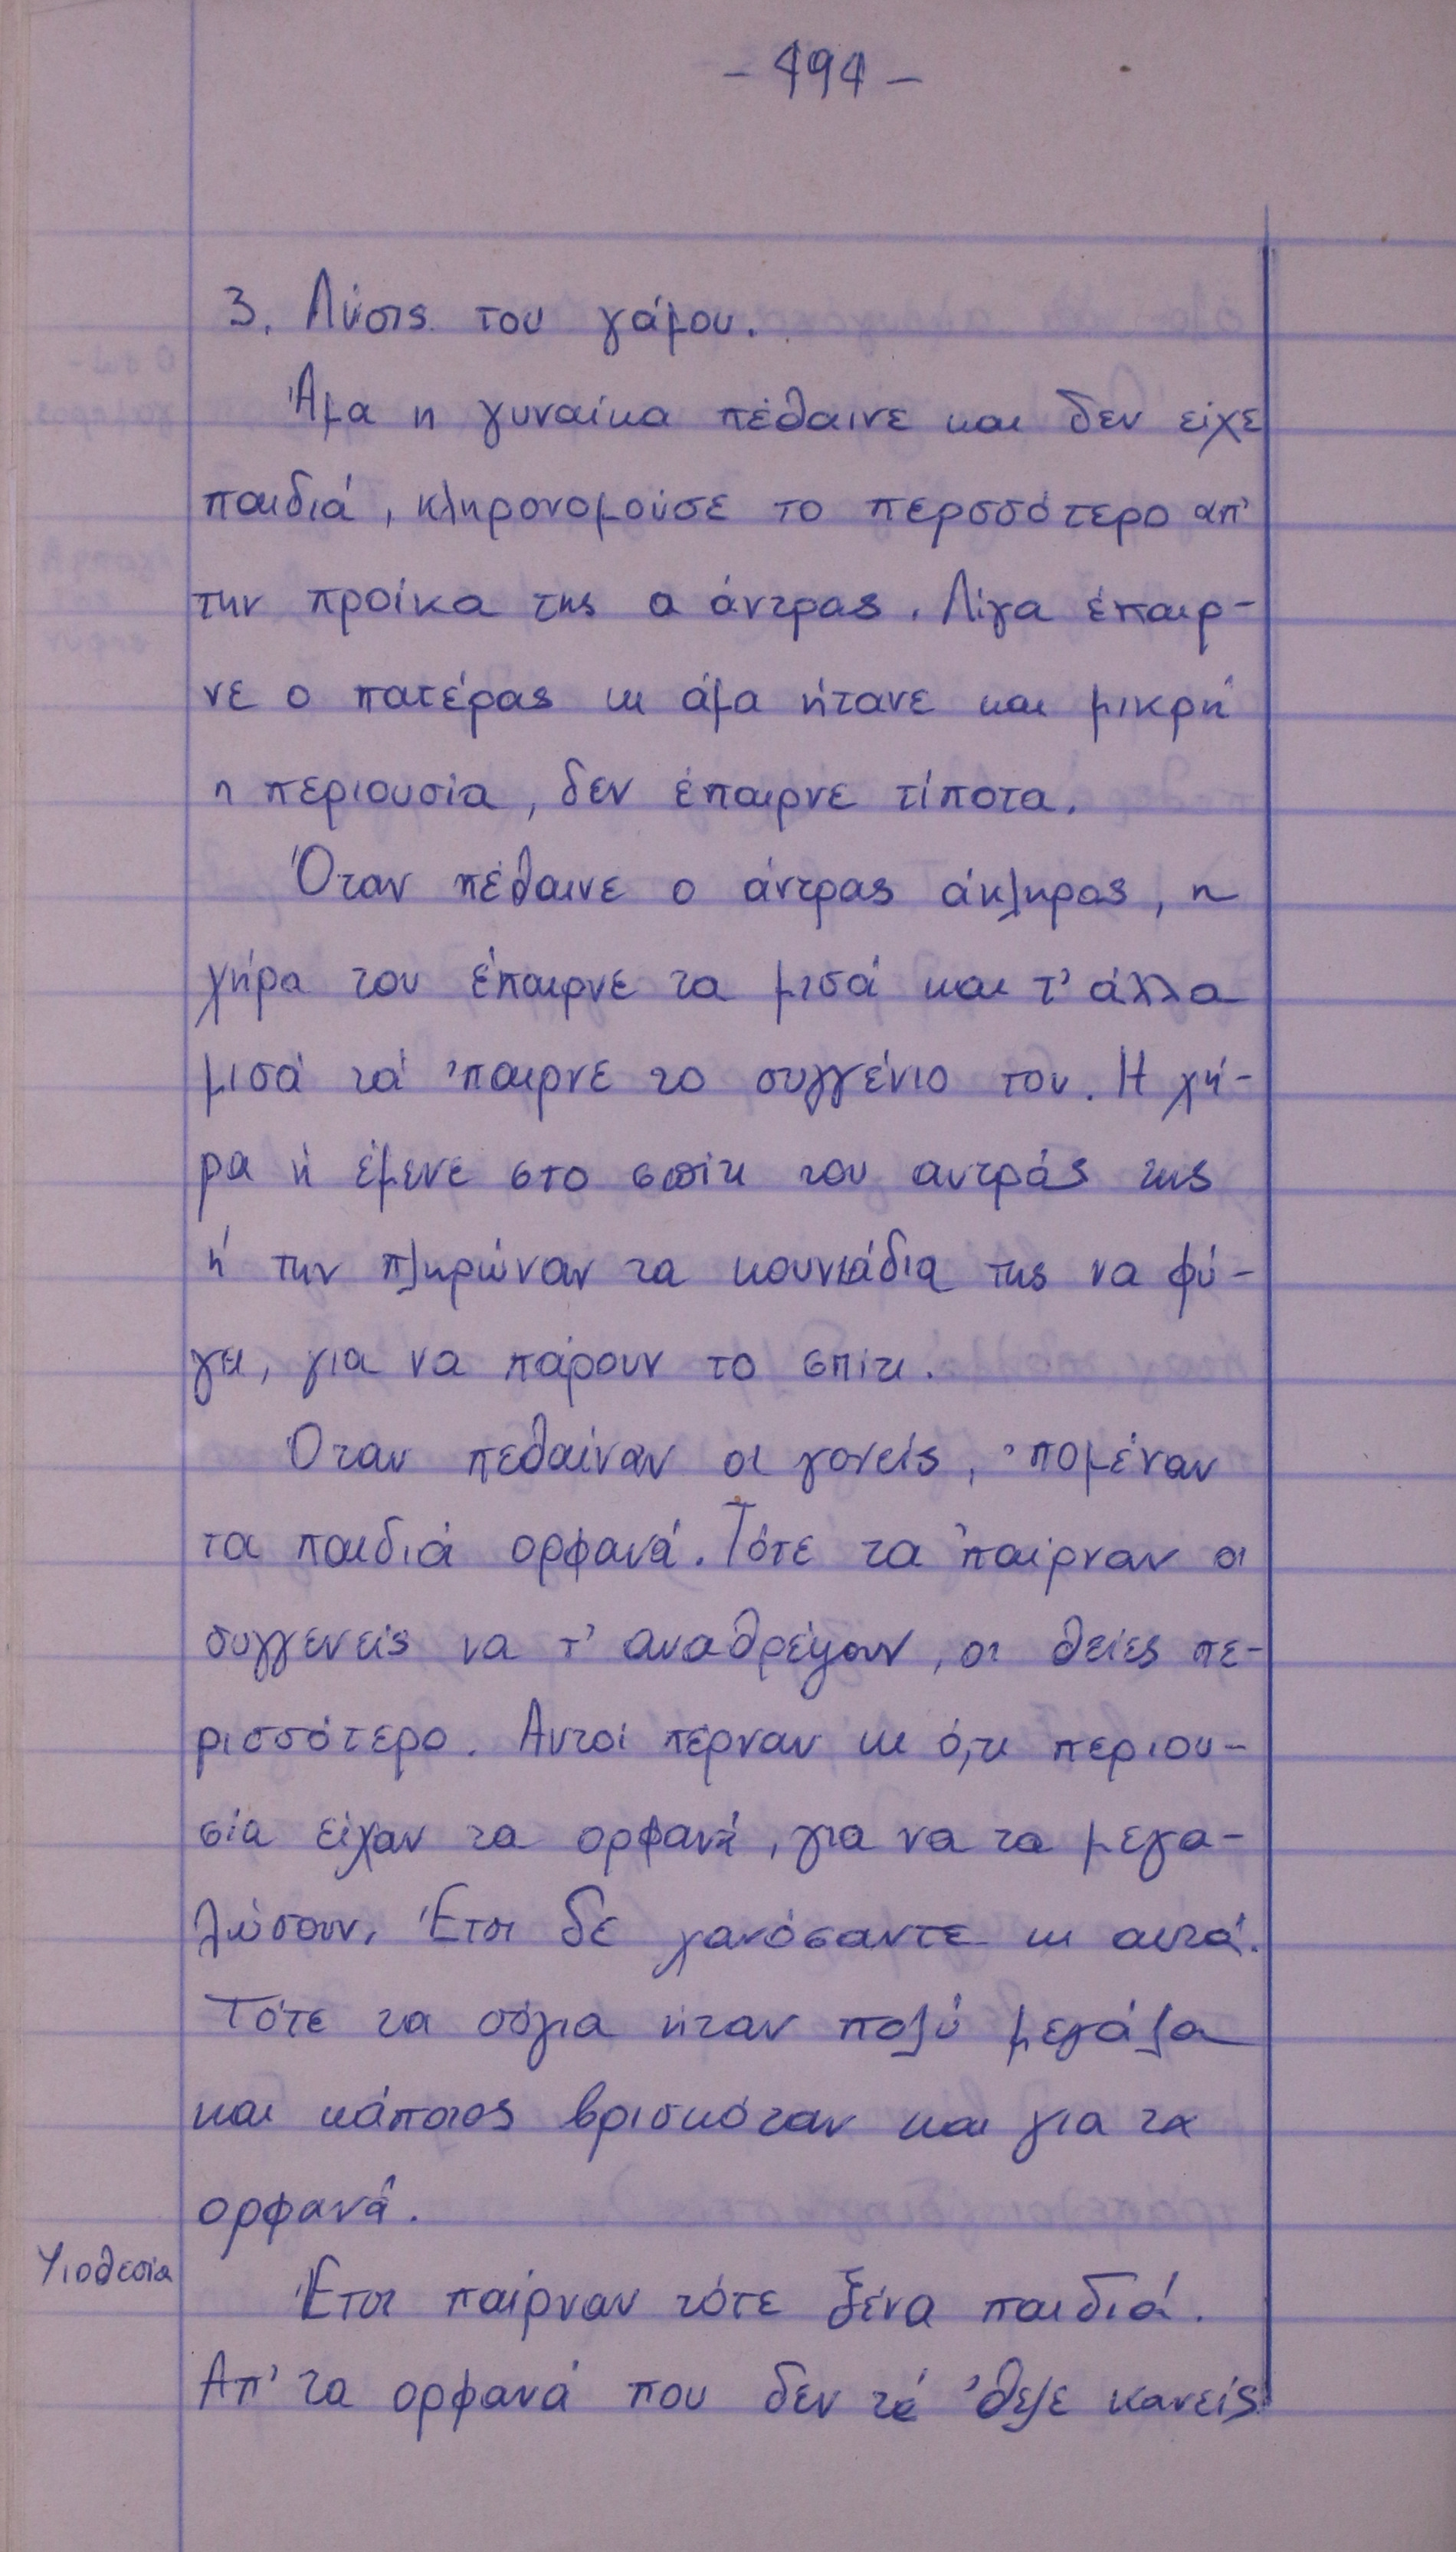 - 494 -
3. Λύσις του γάμου.
Άμα η γυναίκα πέθαινε και δεν είχε
παιδιά, κληρονομούσε το περσσότερο απ'
την προίκα της ο άντρας. Λίγα έπαιρ-
νε ο πατέρας κι άμα ήτανε και μικρή
η περιουσία, δεν έπαιρνε τίποτα.
Όταν πέθαινε ο άντρας άκληρος, η
χήρα του έπαιρνε τα μισά και τ' άλλα
μισά τά 'παιρνε το συγγένιο του. Η χή-
ρα ή έμενε στο σπίτι του αντρός της
ή την πληρώναν τα κουνιάδια της να φύ-
γει, για να πάρουν το σπίτι.
Όταν πεθαίναν οι γονείς, 'πομέναν
τα παιδιά ορφανά. Τότε τα παίρναν οι
συγγενείς να τ' αναθρέψουν, οι θείες πε-
ρισσότερο. Αυτοί πέρναν κι ό,τι περιου-
σία είχαν τα ορφανά, για να τα μεγα-
λώσουν. Έτσι δε χανόσαντε κι αυτά.
Τότε τα σόγια ήταν πολύ μεγάλα
και κάποιος βρισκόταν και για τα
ορφανά.
Υιοθεσία
Έτσι παίρναν τότε ξένα παιδιά.
Απ' τα ορφανά που δεν τά 'θελε κανείς